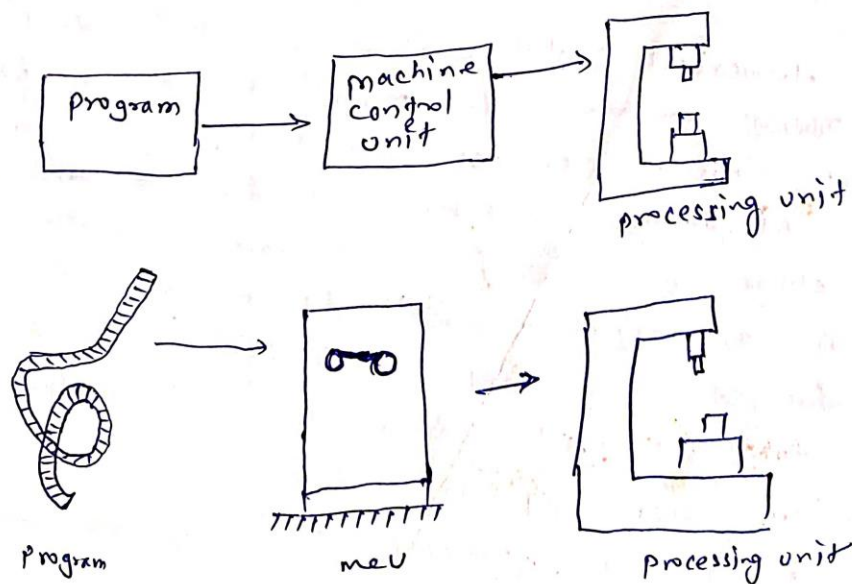 program
machine
control
unit
processing unit
program
mcu
processing unit